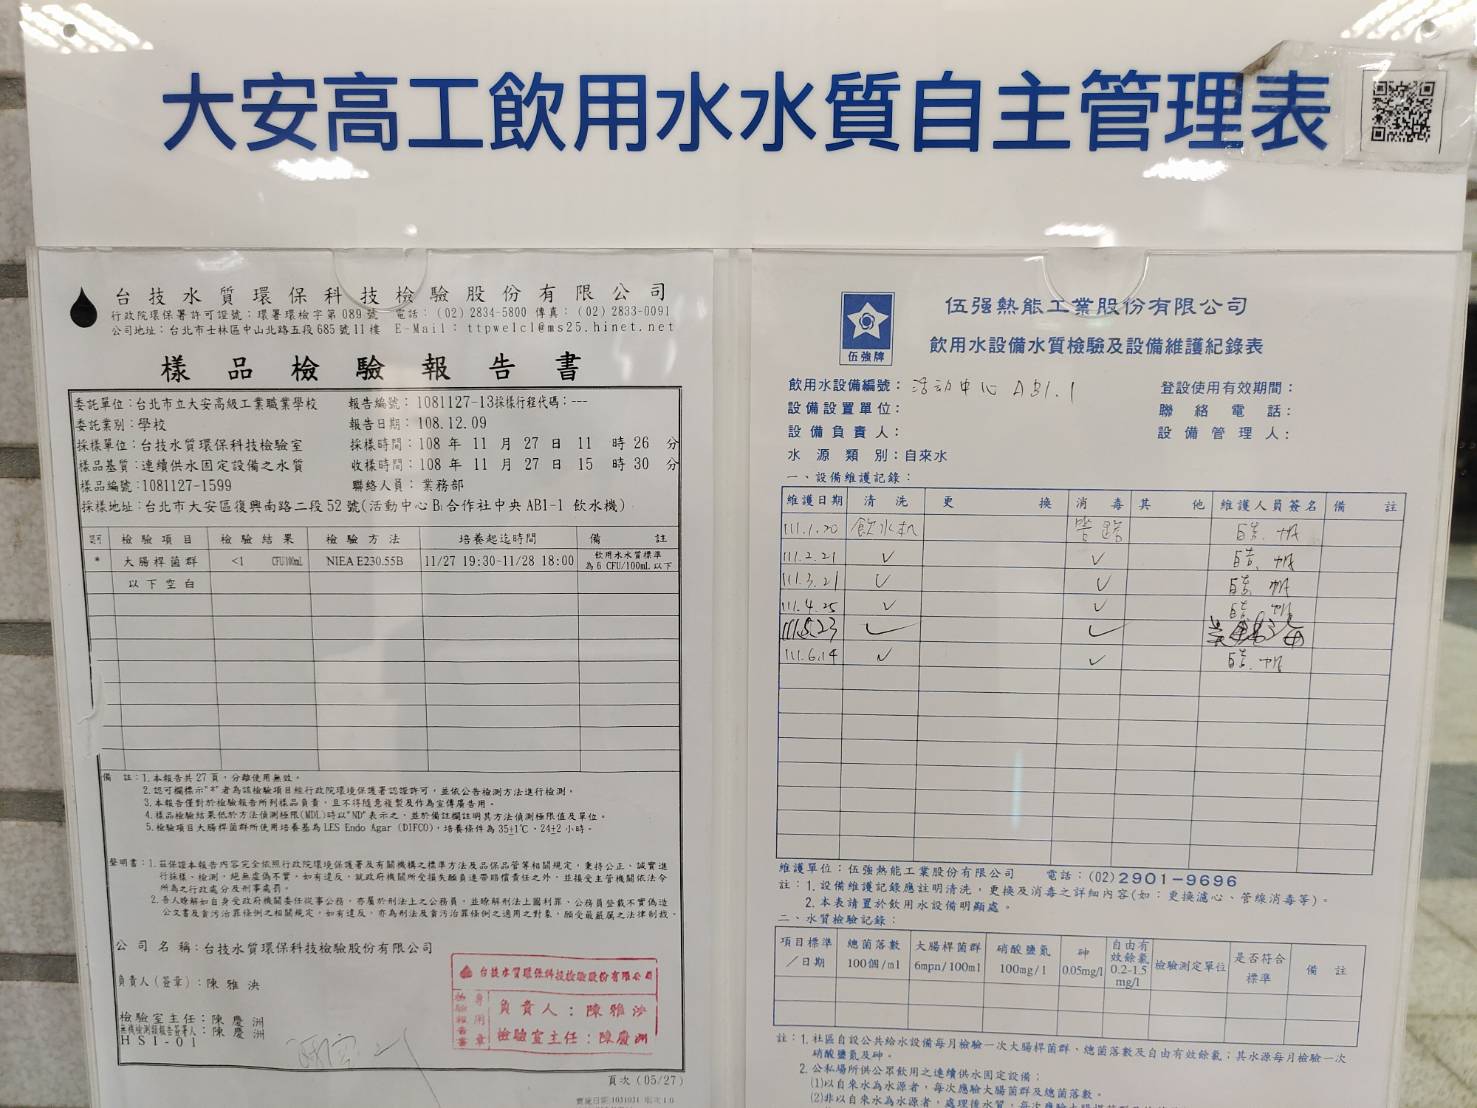 大安高工飲用水水質自主管理表
台技水質環保科技檢驗股份有限公司
行政院環保署許可證號：環署環檢字第089號 電話：(02) 2834-5800 傳真：(02) 2833-0091
公司地址：台北市士林區中山北路五段685號11樓 E-Mail：ttpwelcl@ms25.hinet.net
樣品檢驗報告書
委託單位：台北市立大安高級工業職業學校 報告編號：1081127-13採樣行程代碼：---
委託業別：學校 報告日期：108.12.09
採樣單位：台技水質環保科技檢驗室 採樣時間：108 年 11 月 27 日 11 時 26 分
樣品基質：連續供水固定設備之水質 收樣時間：108 年 11 月 27 日 15 時 30 分
樣品編號：1081127-1599 聯絡人員：業務部
採樣地址：台北市大安區復興南路二段52號(活動中心B1合作社中央AB1-1飲水機)
認可 檢驗項目 檢驗結果 檢驗方法 培養起迄時間 備註
* 大腸桿菌群 <1 CFU/100mL NIEA E230.55B 11/27 19:30-11/28 18:00 飲用水水質標準
為6 CFU/100mL以下
以下空白
備註：1.本報告共27頁，分離使用無效。
2.認可欄標示"*"者為該檢驗項目經行政院環境保護署認證許可，並依公告檢測方法進行檢測。
3.本報告僅對於檢驗報告所列樣品負責，且不得隨意複製及作為宣傳廣告用。
4.樣品檢驗結果低於方法偵測極限(MDL)時以"ND"表示之，並於備註欄註明其方法偵測極限值及單位。
5.檢驗項目大腸桿菌群所使用培養基為LES Endo Agar (DIFCO)，培養條件為35±1℃，24±2小時。
聲明書：1.茲保證本報告內容完全依照行政院環境保護署及有關機構之標準方法及品保品管等相關規定，秉持公正、誠實進
行採樣、檢測，絕無虛偽不實。如有違反，就政府機關所受損失願負連帶賠償責任之外，並接受主管機關依法令
所為之行政處分及刑事處罰。
2.吾人瞭解如自身受政府機關委任從事公務，亦屬於刑法上之公務員，並瞭解刑法上圖利罪、公務員登載不實偽造
公文書及貪污治罪條例之相關規定，如有違反，亦為刑法及貪污治罪條例之適用之對象，願受最嚴厲之法律制裁。
公司名稱：台技水質環保科技檢驗股份有限公司
負責人(簽章)：陳雅泱
檢驗室主任：陳慶洲
無機檢測類報告簽署人：陳慶洲
HSI-01
台技水質環保科技檢驗股份有限公司
檢驗報告書專用章
負責人：陳雅泱
檢驗室主任：陳慶洲
頁次(05/27)
伍強牌
伍強熱能工業股份有限公司
飲用水設備水質檢驗及設備維護紀錄表
飲用水設備編號：活動中心AB1.1 登設使用有效期間：
設備設置單位： 聯絡電話：
設備負責人： 設備管理人：
水源類別：自來水
一、設備維護記錄：
維護日期 清洗 更換 消毒 其他 維護人員簽名 備註
111.1.20 飲水机 管路
111.2.21 ✓ ✓
111.3.21 ✓ ✓
111.4.25 ✓ ✓
111.5.23 ✓ ✓
111.6.14 ✓ ✓
維護單位：伍強熱能工業股份有限公司 電話：(02)2901-9696
註：1.設備維護記錄應註明清洗，更換及消毒之詳細內容(如：更換濾心、管線消毒等)。
2.本表請置於飲用水設備明顯處。
二、水質檢驗記錄：
項目標準／日期 總菌落數 100個/ml 大腸桿菌群 6mpn/100ml 硝酸鹽氮 100mg/l 砷 0.05mg/l 自由有效餘氯 0.2-1.5 mg/l 檢驗測定單位 是否符合標準 備註
註：1.社區自設公共給水設備每月檢驗一次大腸桿菌群、總菌落數及自由有效餘氯；其水源每月檢驗一次
硝酸鹽氮及砷。
2.公私場所供公眾飲用之連續供水固定設備：
(1)以自來水為水源者，每次應驗大腸菌群及總菌落數。
(2)非以自來水為水源者，處理後水質，每次應驗大腸桿菌群